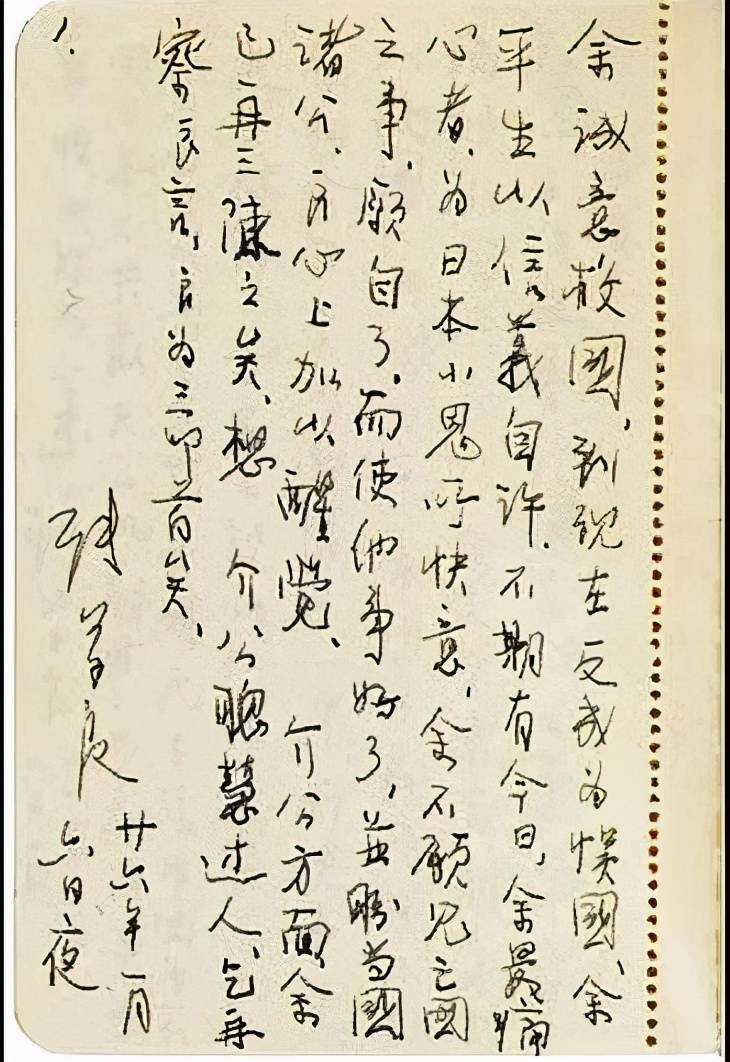 余誠意救國、到現在反成为悞國、余
平生以信義自許、不期有今日、余最痛
心者、为日本小鬼所快意、余不願見亡國
之事、願自了、而使他事好了、並盼当國
諸公、良心上加以醒覺、 介公方面、余
已再三陳之矣、想 介公聰慧过人、乞再
察良言、良为三叩首矣、
張學良
廿六年一月
六日夜
1.